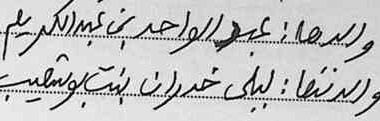 والدها: عبد الواحد بن عبد الكريم
والدتها: ليلى خدران بنت بوشعيب